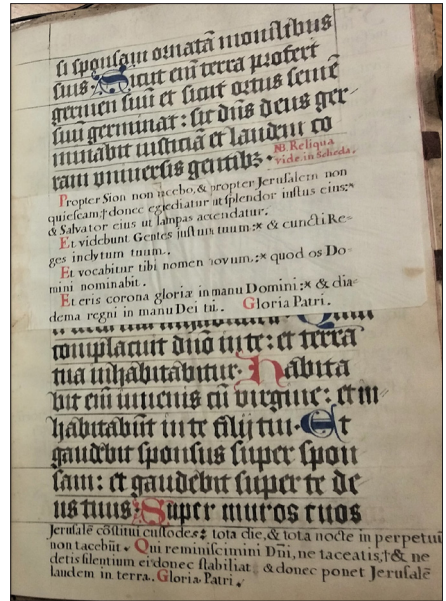 si sponsam ornatã monilibus
suis. Sicut eiñ terra profert
germen suũ et sicut ortus semẽ
suũ germinat: sic dñs deus ger-
minabit iusticiã et laudem co
ram vniuersis gentibꝫ. NB. Reliqua
vide in Scheda.
Propter Sion non tacebo, & propter Jerusalem non
quiescam, † donec egrediatur ut splendor iustus eius: *
& Salvator eius ut lampas accendatur.
Et videbunt Gentes justum tuum: * & cuncti Re=
ges inclytum tuum.
Et vocabitur tibi nomen novum: * quod os Do-
mini nominabit.
Et eris corona gloriæ in manu Domini: * & dia-
dema regni in manu Dei tui. Gloria Patri.
complacuit dño in te: et terra
tua inhabitabitur. Habita
bit eiñ iuuenis cũ virgine: et in
habitabũt in te filij tui. Et
gaudebit sponsus super spon
sam: et gaudebit super te de
us tuus: Super muros tuos
Jerusalẽ cõstitui custodes: tota die, & tota nocte in perpetuũ
non tacebũt. Qui reminiscimini Dñi, ne taceatis, † & ne
detis silentium ei donec stabiliat & donec ponet Jerusalẽ
laudem in terra. Gloria Patri.